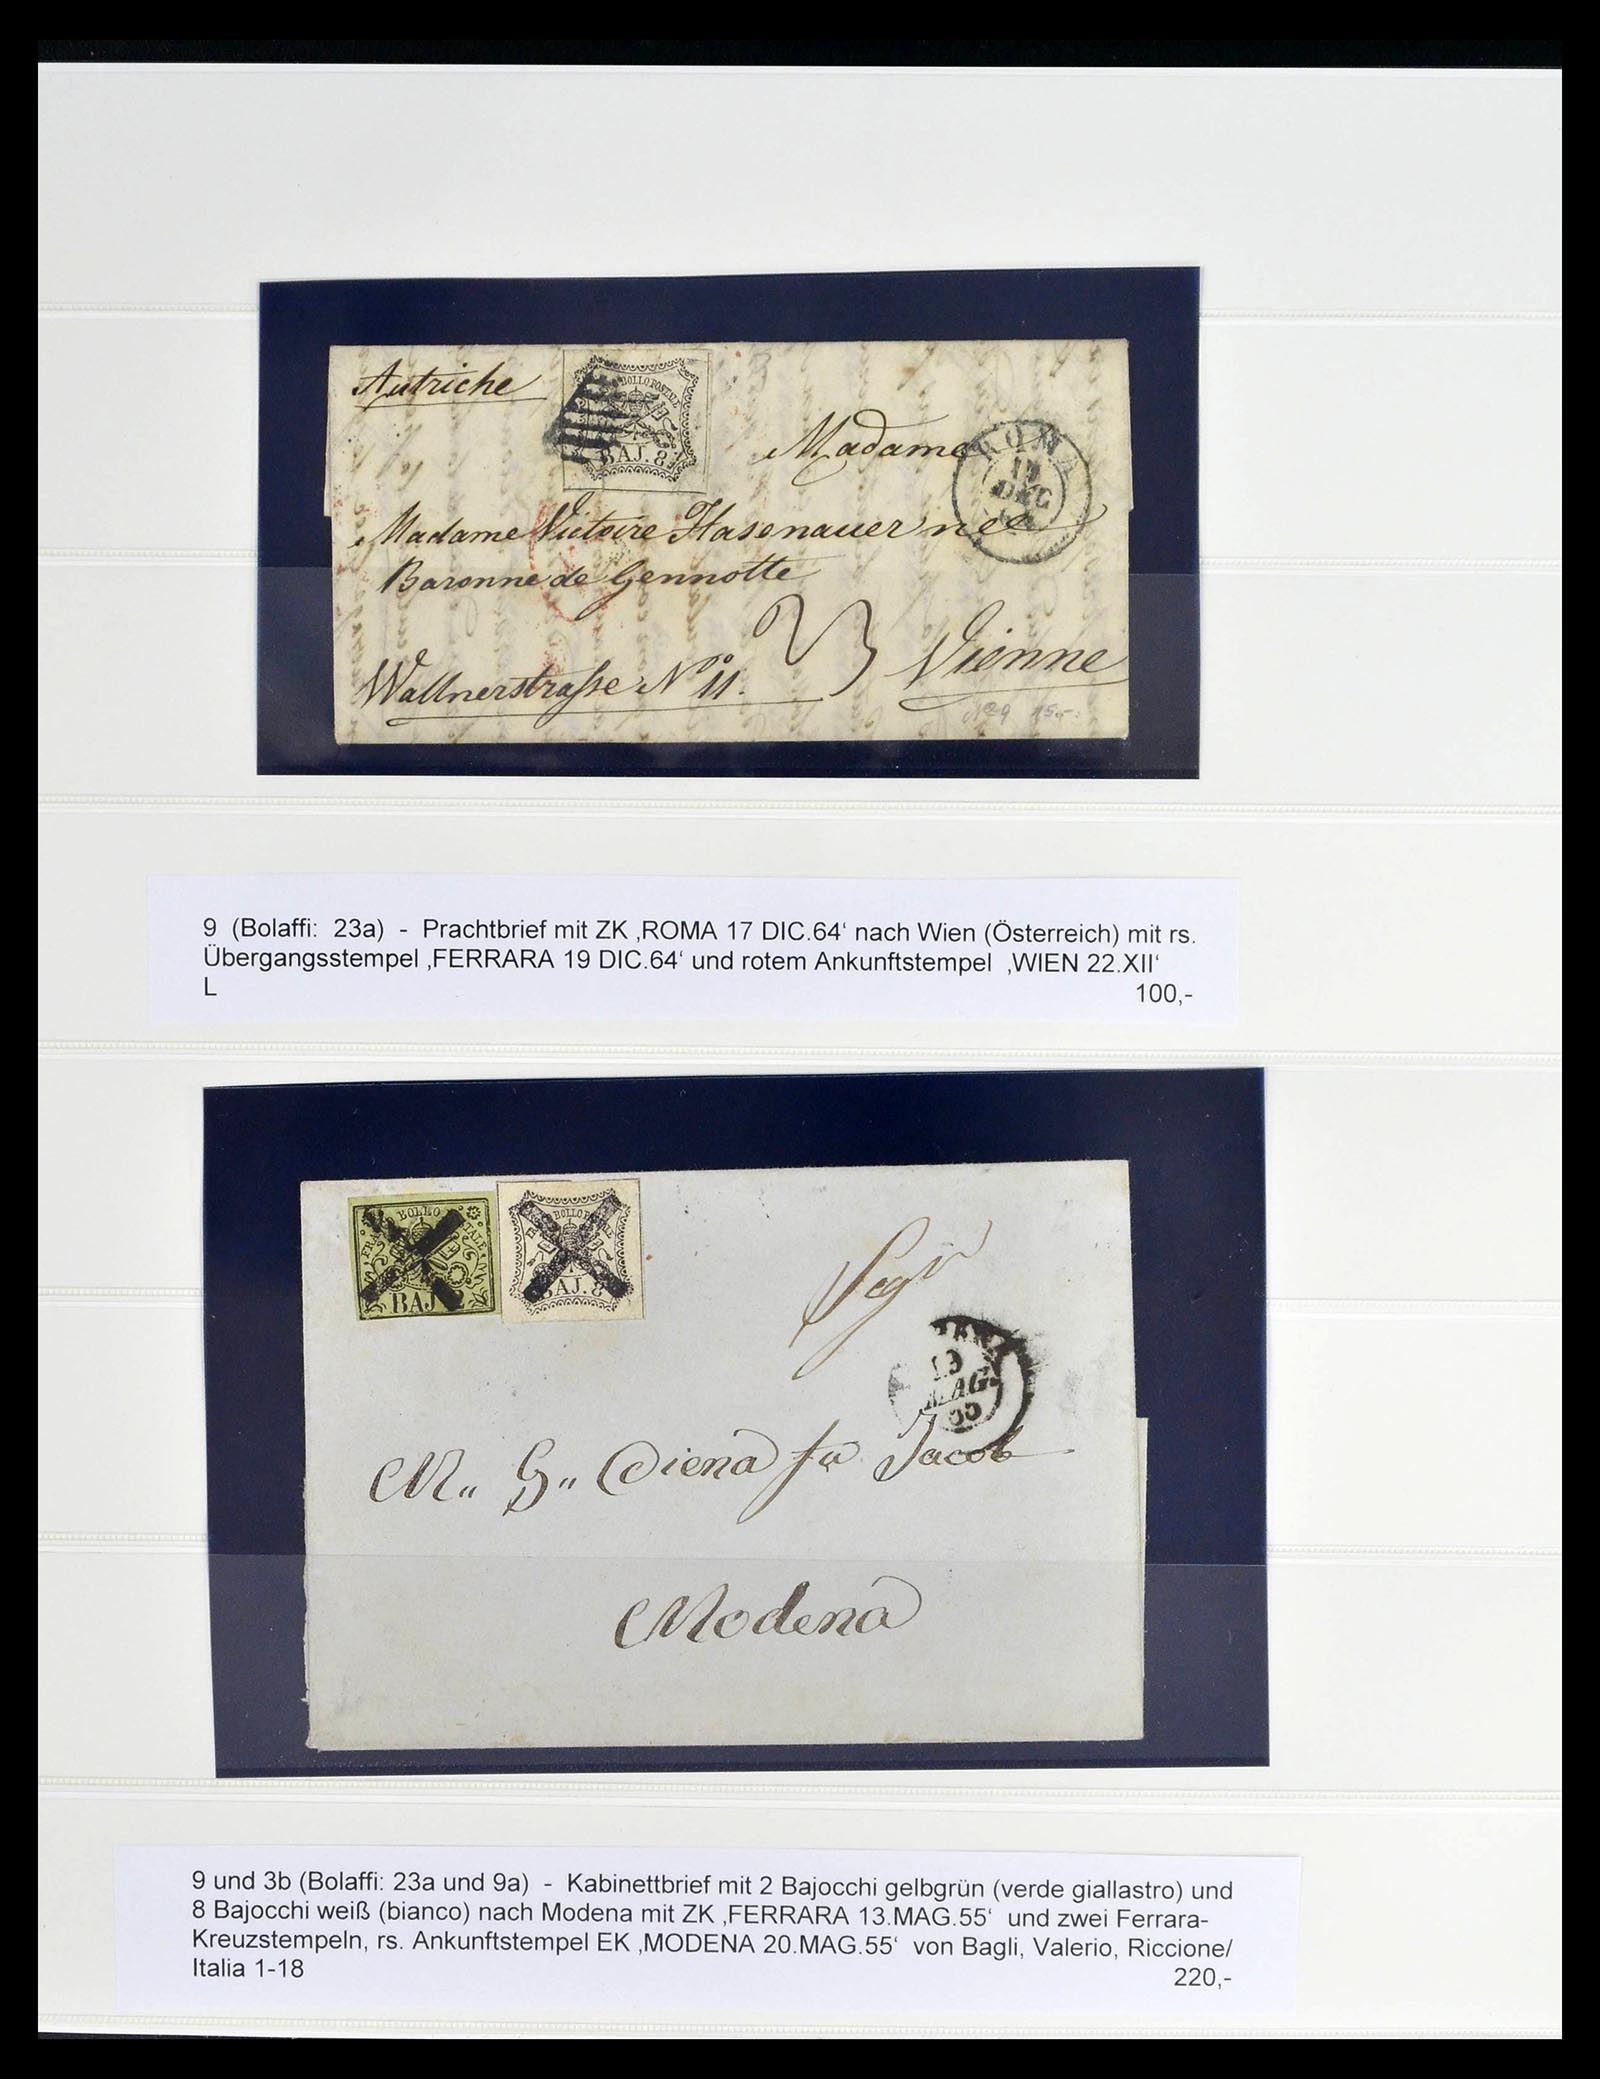 Autriche
BOLLO POSTALE
BAJ. 8
Madame
ROMA
17
DIC
Madame Victoire Hasenauer née
Baronne de Gennotte
Wallnerstraſse No 11.
Vienne
9 (Bolaffi: 23a) - Prachtbrief mit ZK ‚ROMA 17 DIC.64‘ nach Wien (Österreich) mit rs.
Übergangsstempel ‚FERRARA 19 DIC.64‘ und rotem Ankunftstempel ‚WIEN 22.XII‘
L 100,-
BOLLO
BAJ 2
BOLLO POSTALE
BAJ. 8
MAG.
55
M. G. Diena fu Jacob
Modena
9 und 3b (Bolaffi: 23a und 9a) - Kabinettbrief mit 2 Bajocchi gelbgrün (verde giallastro) und
8 Bajocchi weiß (bianco) nach Modena mit ZK ‚FERRARA 13.MAG.55‘ und zwei Ferrara-
Kreuzstempeln, rs. Ankunftstempel EK ‚MODENA 20.MAG.55‘ von Bagli, Valerio, Riccione/
Italia 1-18 220,-